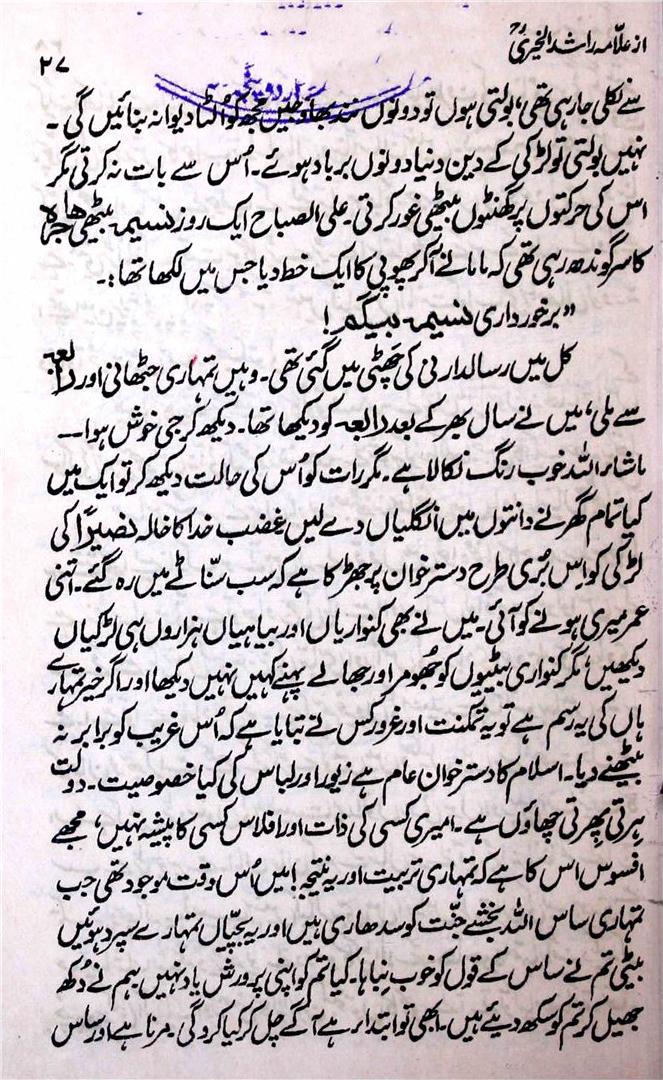 از علامہ راشد الخیریؒ
۲۷
سے نکلی جا رہی تھی، بولتی ہوں تو دونوں نند بھاوجیں مجھ کو الٹا دیوانہ بنائیں گی ۔
نہیں بولتی تو لڑکی کے دین دنیا دونوں برباد ہوئے۔ اُس سے بات نہ کرتی مگر
اس کی حرکتوں پر گھنٹوں بیٹھی غور کرتی۔ علی الصباح ایک روز نسیمہ بیٹھی ہاجرہ
کا سر گوندھ رہی تھی کہ ماما نے آکر پھوپی کا ایک خط دیا جس میں لکھا تھا:۔
”برخورداری نسیمہ بیگم!
کل میں رسالدارنی کی چھٹی میں گئی تھی۔ وہیں تمہاری جٹھانی اور رابعہ
سے ملی، میں نے سال بھر کے بعد رابعہ کو دیکھا تھا۔ دیکھ کر جی خوش ہوا ۔۔
ماشاء اللہ خوب رنگ نکالا ہے۔ مگر رات کو اُس کی حالت دیکھ کر تو ایک میں
کیا تمام گھر نے دانتوں میں انگلیاں دے لیں غضب خدا کا خالہ نصیرًا کی
لڑکی کو اِس بُری طرح دسترخوان پر جھڑکا ہے کہ سب سنّاٹے میں رہ گئے۔ اتنی
عمر میری ہونے کو آئی۔ میں نے بھی کنواریاں اور بیاہیاں ہزاروں ہی لڑکیاں
دیکھیں، مگر کنواری بیٹیوں کو جُھومر اور جھالے پہنے کہیں نہیں دیکھا اور اگر خیر تمہارے
ہاں کی یہ رسم ہے تو یہ تمکنت اور غرور کس نے بتایا ہے کہ اُس غریب کو برابر نہ
بیٹھنے دیا۔ اسلام کا دسترخوان عام ہے زیور اور لباس کی کیا خصوصیت۔ دولت
ہرتی پھرتی چھاؤں ہے۔ امیری کسی کی ذات اور افلاس کسی کا پیشہ نہیں، مجھے
افسوس اس کا ہے کہ تمہاری تربیت اور یہ نتیجہ! میں اُس وقت موجود تھی جب
تمہاری ساس اللہ بخشے جنّت کو سدھاری ہیں اور یہ بچیّاں تمہارے سپرد ہوئیں
بیٹی تم نے ساس کے قول کو خوب نِباہا۔ کیا تم کو اپنی پرورش یاد نہیں ہم نے دُکھ
جھیل کر تم کو سکھ دیئے ہیں۔ ابھی تو ابتداء ہے آگے چل کر کیا کرو گی۔ مرنا ہے اور ساس